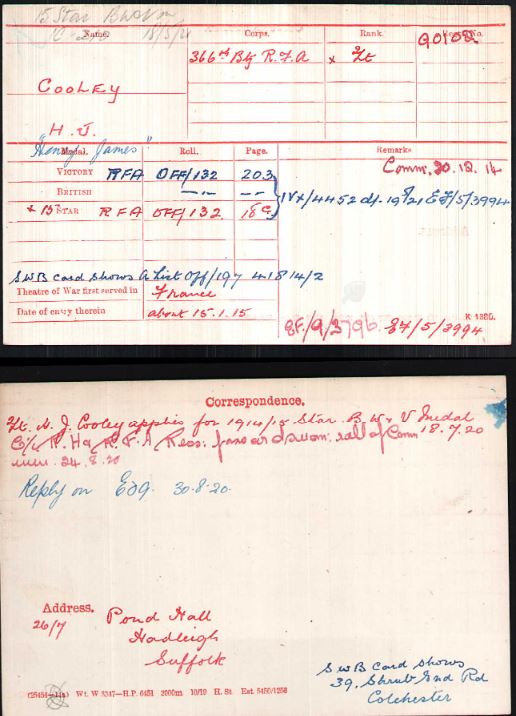 15 Star
Name. Corps. Rank. Regtl. No.
366th Bty R.F.A x Lt 90102
COOLEY
H. J.
"Henry James"
Medal. Roll. Page. Remarks.
VICTORY RFA OFF/132 203 Comm. 30.12.14
BRITISH —·— —·— IVX/4452 d/- 19/9/21 EF/5/3994
x 15 STAR RFA OFF/132 18C
SWB Card shows A List Off/197 41814/2
Theatre of War first served in France
Date of entry therein about 15.1.15
K 1380.
8F/9/3796. EF/5/3994
Correspondence.
Lt. H. J. Cooley applies for 1914/15 Star. B W & V Medal 18.7.20
24.8.20
Reply on EF9. 30.8.20.
Address.
26/7 Pond Hall
Hadleigh
Suffolk
SWB Card shows
39, Shrub End Rd
Colchester
Wt. W 3347—H.P. 6451 2000m 10/19 H. St. Est 5450/1256